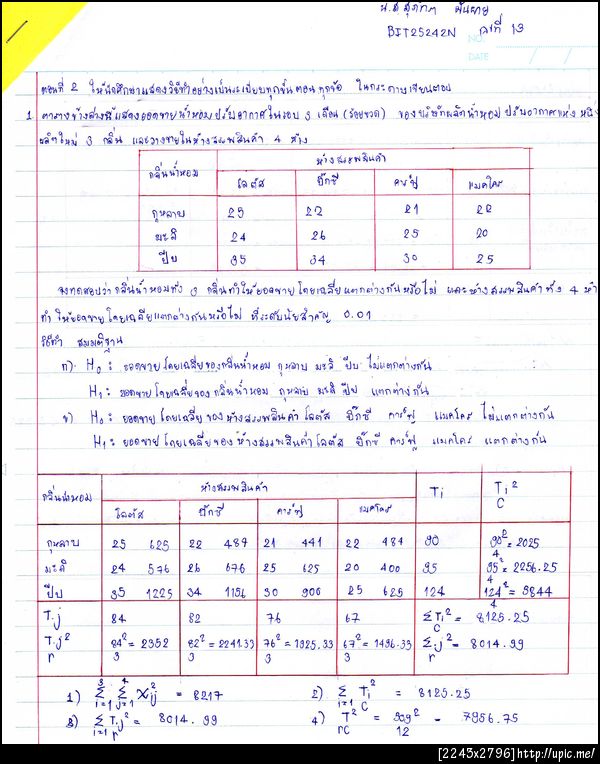 น.ส.สุภาพร พันธาย
BIT25242N เลขที่ 13
NO.
DATE
ตอนที่ 2 ให้นักศึกษาแสดงวิธีทำอย่างเป็นระเบียบทุกขั้นตอนทุกข้อ ในกระดาษเขียนตอบ
1 ตารางข้างล่างนี้แสดงยอดขายน้ำหอมปรับอากาศในรอบ 3 เดือน (ร้อยขวด) ของบริษัทผลิตน้ำหอมปรับอากาศแห่งหนึ่ง
ผลิตใหม่ 3 กลิ่น และวางขายในห้างสรรพสินค้า 4 ห้าง
กลิ่นน้ำหอม ห้างสรรพสินค้า
โลตัส บิ๊กซี คาร์ฟู แมคโคร
กุหลาบ 25 22 21 22
มะลิ 24 26 25 20
ปีบ 35 34 30 25
จงทดสอบว่ากลิ่นน้ำหอมทั้ง 3 กลิ่นทำให้ยอดขายโดยเฉลี่ยแตกต่างกันหรือไม่ และห้างสรรพสินค้าทั้ง 4 ห้าง
ทำให้ยอดขายโดยเฉลี่ยแตกต่างกันหรือไม่ ที่ระดับนัยสำคัญ 0.01
วิธีทำ สมมติฐาน
ก) H₀ : ยอดขายโดยเฉลี่ยของกลิ่นน้ำหอม กุหลาบ มะลิ ปีบ ไม่แตกต่างกัน
H₁ : ยอดขายโดยเฉลี่ยของกลิ่นน้ำหอม กุหลาบ มะลิ ปีบ แตกต่างกัน
ข) H₀ : ยอดขายโดยเฉลี่ยของห้างสรรพสินค้าโลตัส บิ๊กซี คาร์ฟู แมคโคร ไม่แตกต่างกัน
H₁ : ยอดขายโดยเฉลี่ยของห้างสรรพสินค้าโลตัส บิ๊กซี คาร์ฟู แมคโคร แตกต่างกัน
กลิ่นน้ำหอม ห้างสรรพสินค้า Ti Ti²/C
โลตัส บิ๊กซี คาร์ฟู แมคโคร
กุหลาบ 25 625 22 484 21 441 22 484 90 90²/4 = 2025
มะลิ 24 576 26 676 25 625 20 400 95 95²/4 = 2256.25
ปีบ 35 1225 34 1156 30 900 25 625 124 124²/4 = 3844
T.j 84 82 76 67 ΣTi²/C = 8125.25
T.j²/r 84²/3 = 2352 82²/3 = 2241.33 76²/3 = 1925.33 67²/3 = 1496.33 Σ.j²/r = 8014.99
1) Σ i=1 3 Σ j=1 4 Xij² = 8217 2) Σ i=1 Ti²/C = 8125.25
3) Σ i=1 T.j²/r = 8014.99 4) T²/rc = 309²/12 = 7956.75
[2243x2796]http://upic.me/